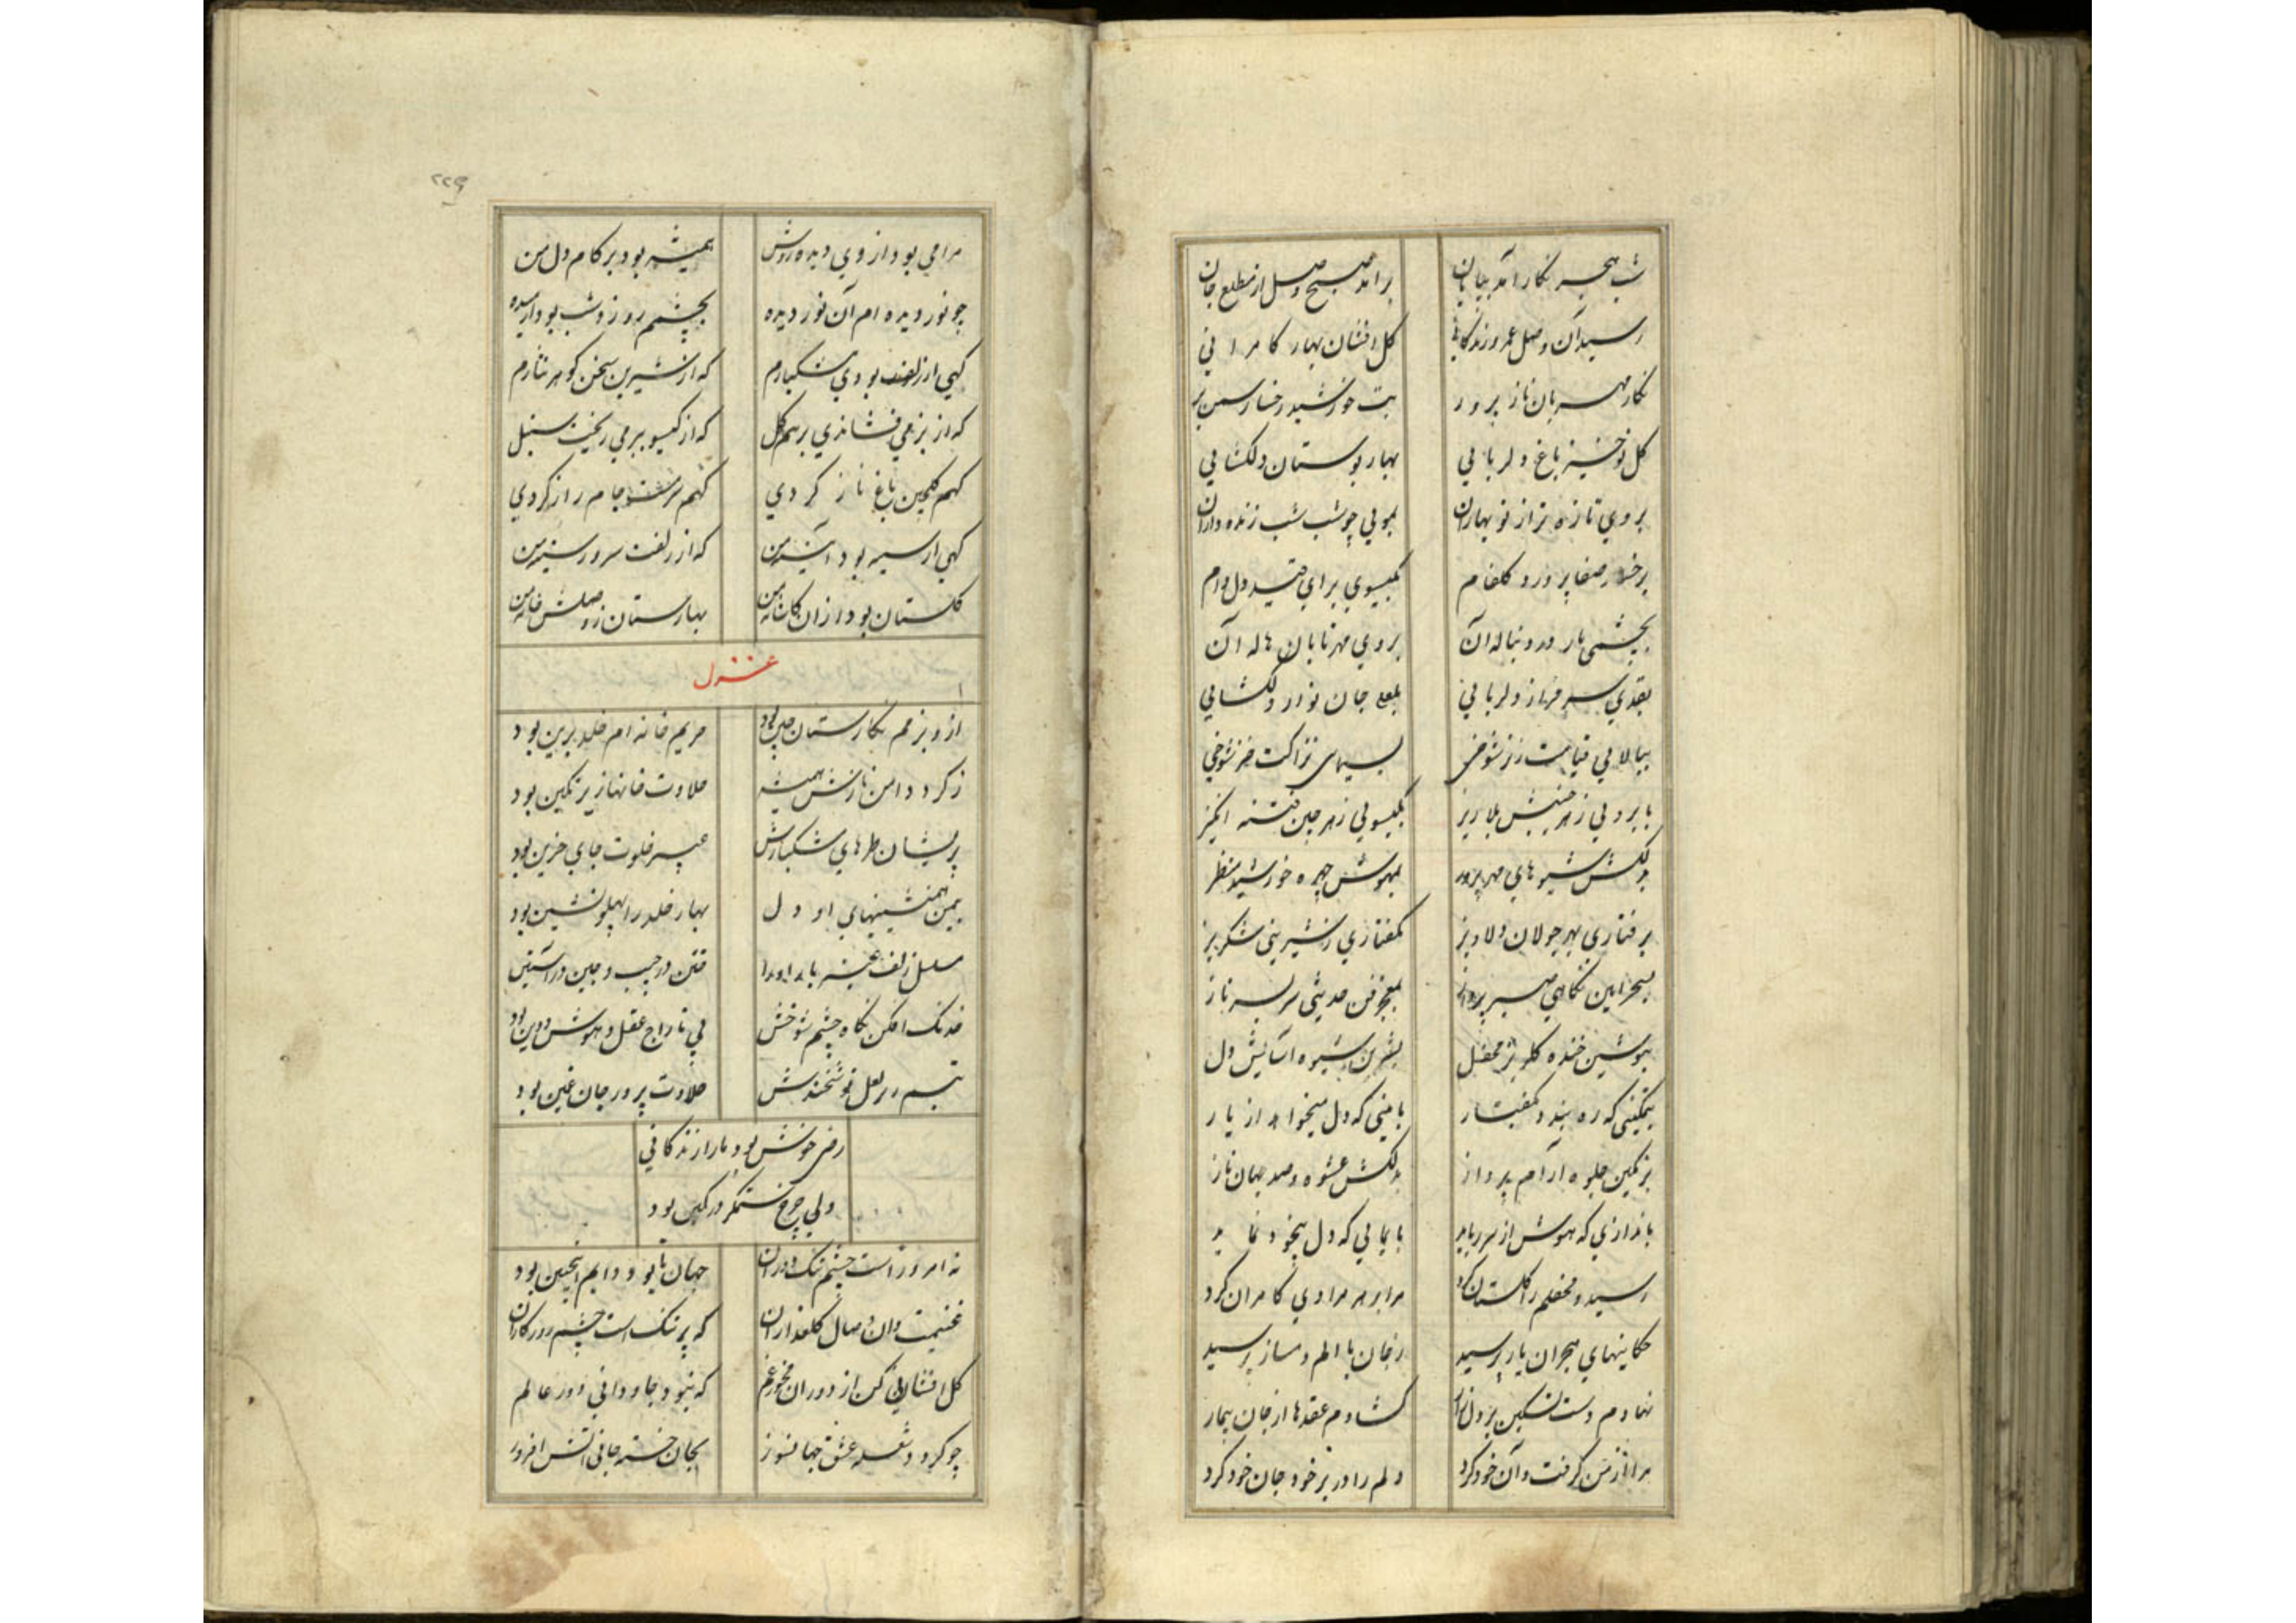 شب هجر نکار آمد بپایان برآمد صبح وصل از مطلع جان
رسید آن وصل عمر و زندکانی کل افشان بهار کامرانی
نکار مهربان ناز پرور بت خورشید رخسار سمن بر
کل نوخیز باغ دلربایی بهار بوستان دلکشایی
بروی تازه تر از نوبهاران بمویی چو شب شب زنده داران
برخسار صفا پرورد کلفام بکیسوی برای قید دل دام
بچشمی دنباله آن بروی مهر تابان هاله آن
بقدی سرفراز دلربایی بلعل جان نواز دلکشایی
ببالایی قیامت بسیمای نزاکت
بابرویی ز هر جنبش بلاریز بکیسویی ز هر چین فتنه انکیز
بدلکش شیوهای مهرپرور بمهوش چهره خورشید منظر
برفتاری بهر جولان دلاویز بکفتاری ز شیرینی شکرریز
بسحرآیین نکاهی صبرپرداز بمعجز فن حدیثی سربسر ناز
بنوشین خنده محفل بشیرین شیوه آسایش دل
بتمکینی که ره بندد بکفتار بآیینی که دل میخواهد از یار
برنکین جلوه آرام پرداز بدلکش عشوه و صد جهان ناز
باندازی که هوش از سر رباید بایمایی که دل بیخود نماید
رسید و محفلم را کلستان کرد مرا بر هر مرادی کامران کرد
حکایتهای هجران یار پرسید ز جان با الم دمساز پرسید
نهادم دست تسکین بر دل زار کشادم عقدها از جان بیمار
مرا از من کرفت و آن خود کرد دلم را در بر خود جان خود کرد
۲۲۹
مرا می بود از وی دیده روشن همیشه بود بر کام دل من
چو نور دیده ام آن نور دیده بچشمم روز و شب بود آرمیده
کهی از زلف بودی مشکبارم که از شیرین سخن کوهر نثارم
که از بزمی فشاندی بر سرم کل که از کیسو ببر می ریخت سنبل
کهم کلچین باغ ناز کردی کهم سرمست جام راز کردی
کهی از سینه بود آیینه من که از زلفت سرو سینه من
کلستان بود ازان کاشانه من بهارستان ز وصلش خانه من
غزل
ازو بزمم نکارستان چین بود حریم خانه ام خلد برین بود
ز کرد دامن نازش همیشه بود
پریشان طرهای مشکبارش عبیر خلوت جان حزین بود
بیمن همنشینیهای او دل بهار خلد را پهلونشین بود
مسلسل زلف ختن در جیب و چین در آستین
خدنک افکن نکاه چشم شوخش پی تاراج عقل و هوش و دین بود
تبسم در لعل نوشخندش حلاوت پرور جان غمین بود
خوش بود ما را زندکانی
ولی چرخ ستمکر در کمین بود
نه امروز است چشم تنک دوران جهان تا بود دایم اینچنین بود
غنیمت دان وصال کلعذاران که پر تنک است چشم روزکاران
کل افشانی کن از دوران مخور غم که نبود جاودانی دور عالم
چو کردد شعله عشق جهانسوز بجان خسته جانی آتش افروز